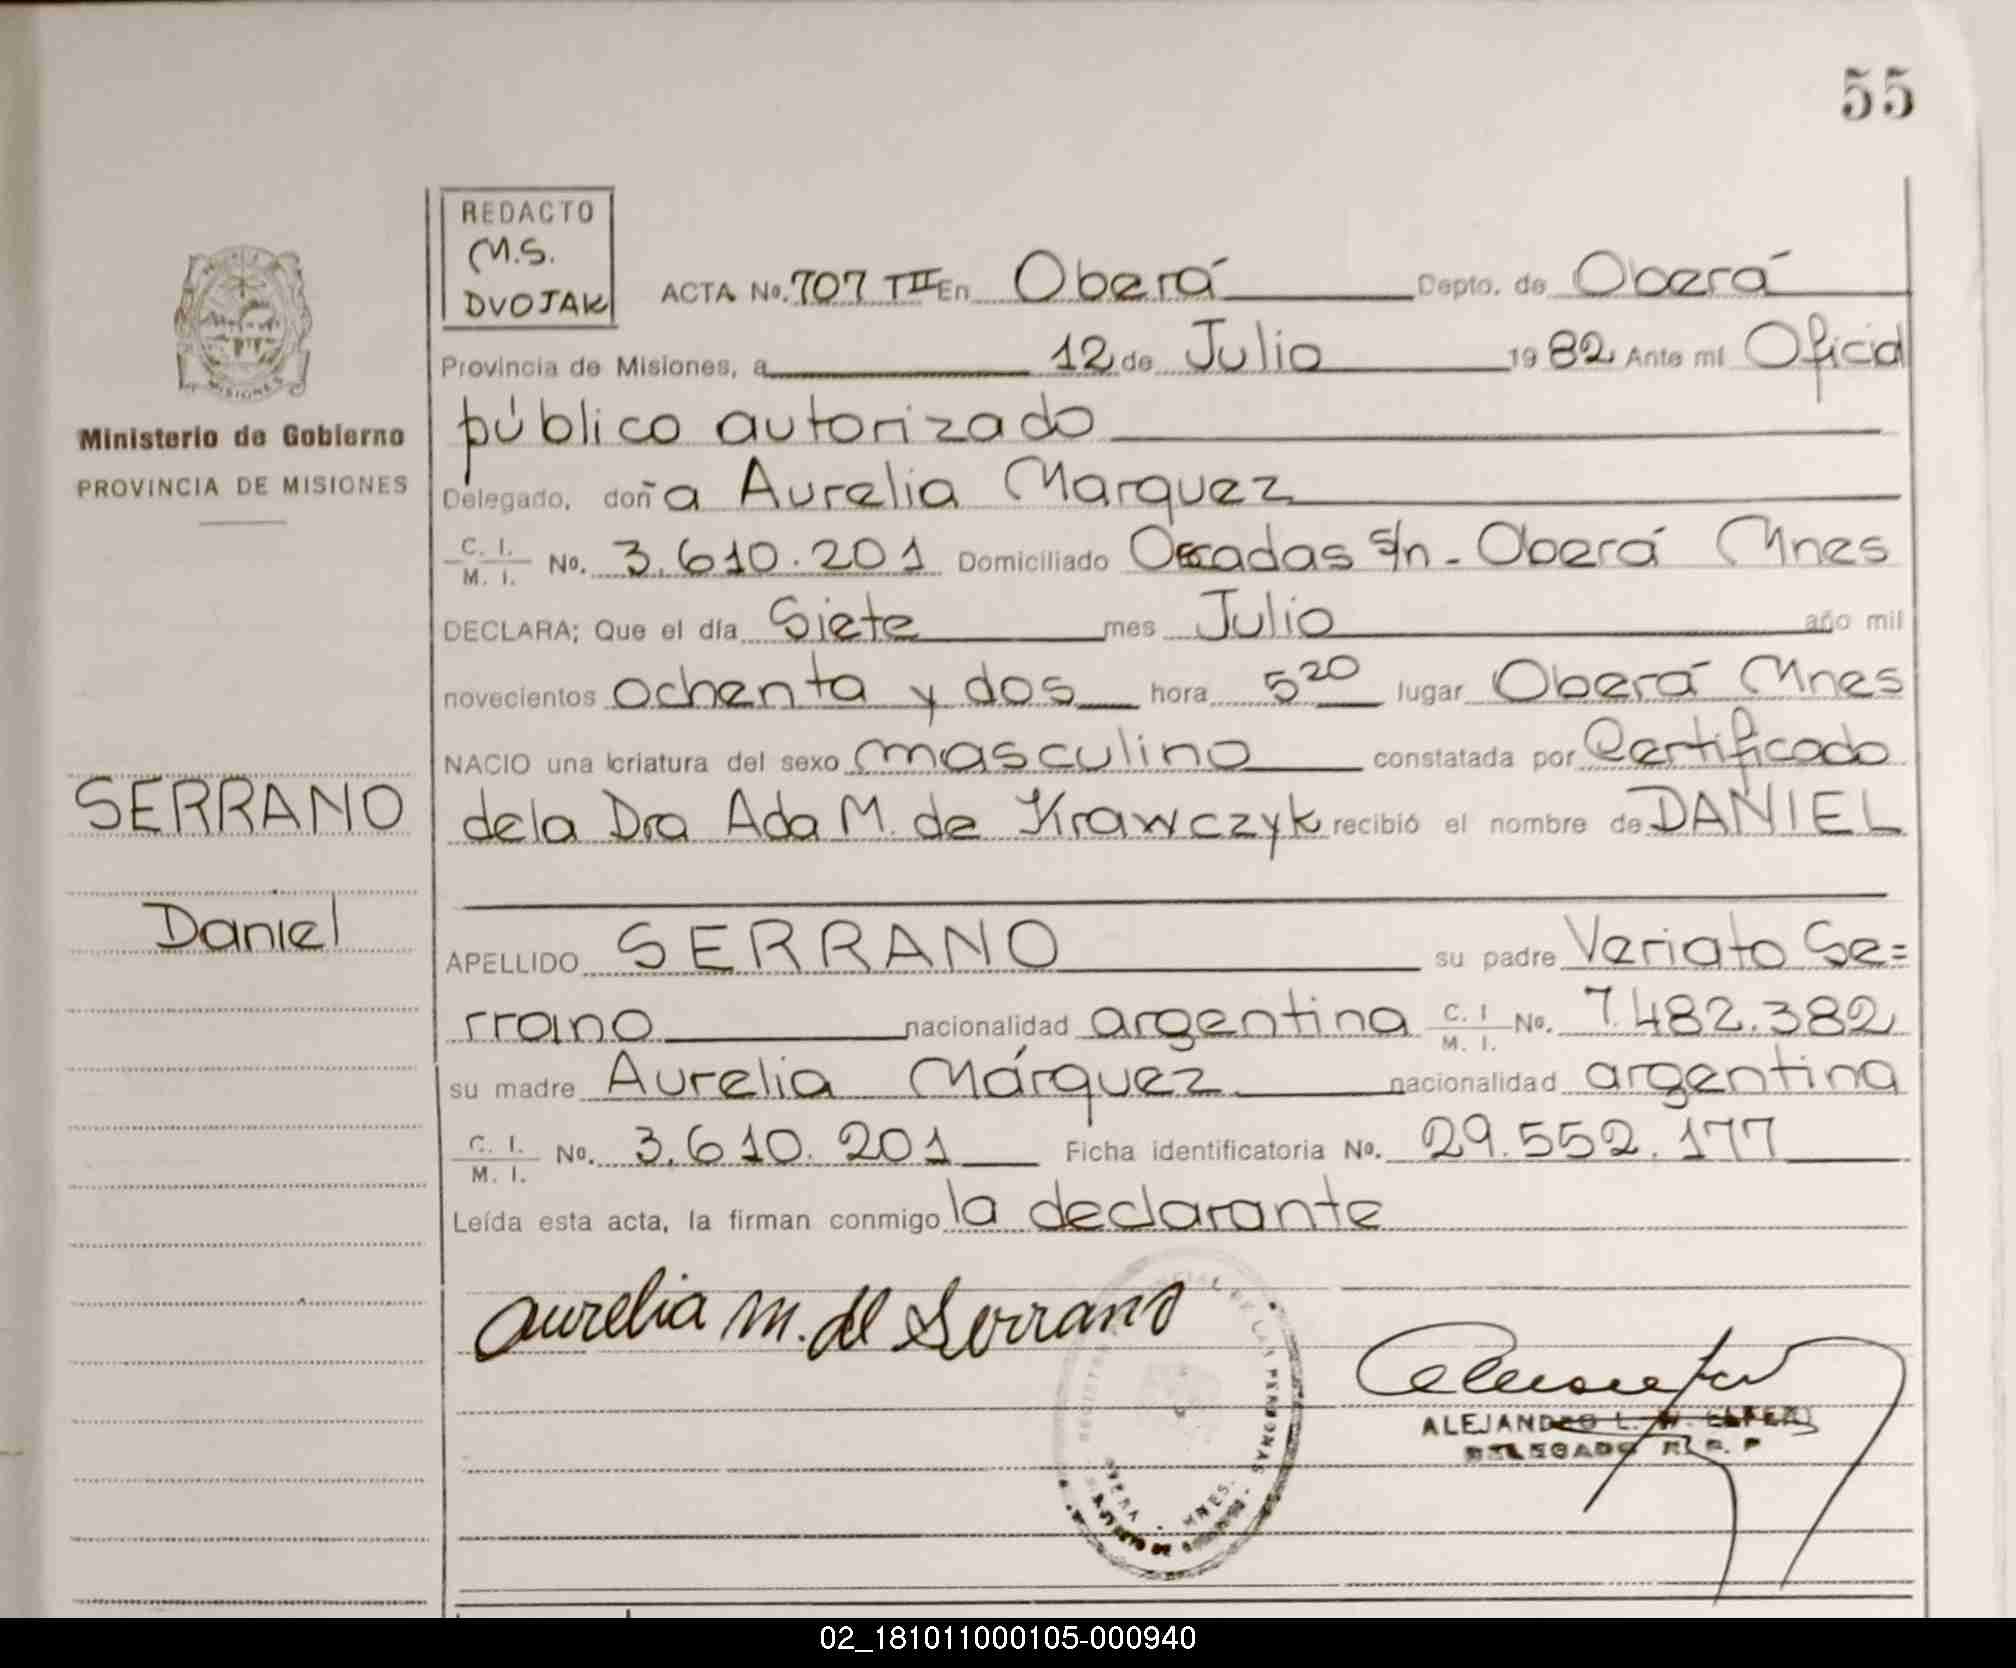 55
REDACTO
M.S.
DVOJAK
ACTA No. 707 TII En Oberá Depto. de Oberá
Provincia de Misiones, a 12 de Julio 1982 Ante mí Oficial
público autorizado
Delegado, doña Aurelia Marquez
C. I. / M. I. No. 3.610.201 Domiciliado s/n - Oberá Mnes
DECLARA; Que el día Siete mes Julio año mil
novecientos ochenta y dos hora 5 20 lugar Oberá Mnes
NACIO una criatura del sexo masculino constatada por Certificado
de la Dra Ada M. de Krawczyk recibió el nombre de DANIEL
APELLIDO SERRANO su padre Veriato Se=
rrano nacionalidad argentina C. I / M. I. No. 7.482.382
su madre Aurelia Márquez nacionalidad argentina
C. I. / M. I. No. 3.610.201 Ficha identificatoria No. 29.552.177
Leída esta acta, la firman conmigo la declarante
Aurelia M. de Serrano
ALEJANDRO L.
DELEGADO R.
OBERA - MNES.
Ministerio de Gobierno
PROVINCIA DE MISIONES
SERRANO
Daniel
02_181011000105-000940